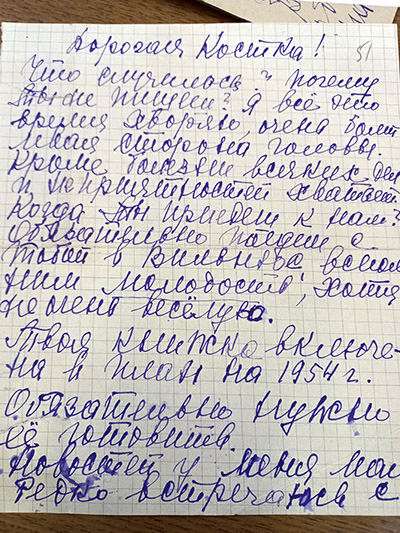 Дорогая Костка! 51
Что случилось? почему
ты не пишеш? я всё это
время хвораю, очень болит
левая сторона головы.
Кроме болезни всяких дел
и неприятностей хватает.
Когда ты приедеш к нам?
Обязательно поедем с
тобой в Вильнюс, вспом
ним молодость, хотя
не очень весёлую.
Твоя книжка включе-
на в план на 1954 г.
Обязательно нужно
её готовить.
Новостей у меня мал
Редко встречаюсь с